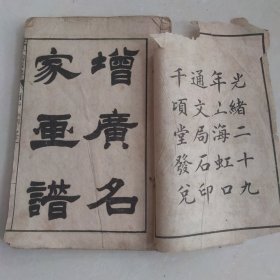 光緒二十九
年上海虹口
通文局石印
千頃堂發兌
增廣名
家畫譜